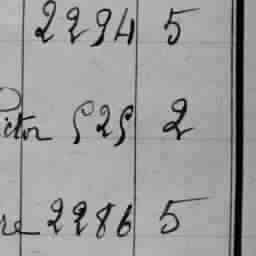 2294 5
ictor 525 2
re 2286 5